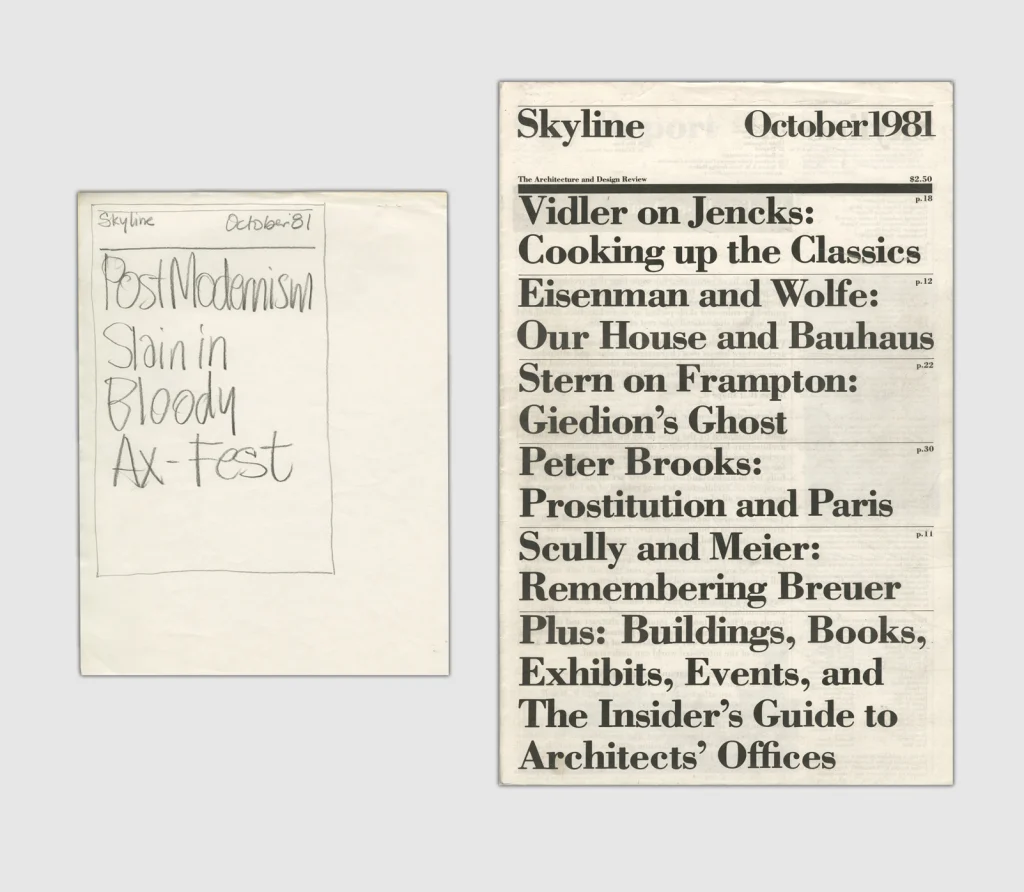 Skyline October '81
PostModernism
Slain in
Bloody
Ax-Fest
Skyline October 1981
The Architecture and Design Review $2.50
p.18
Vidler on Jencks:
Cooking up the Classics
p.12
Eisenman and Wolfe:
Our House and Bauhaus
p.22
Stern on Frampton:
Giedion’s Ghost
p.30
Peter Brooks:
Prostitution and Paris
p.11
Scully and Meier:
Remembering Breuer
Plus: Buildings, Books,
Exhibits, Events, and
The Insider’s Guide to
Architects’ Offices